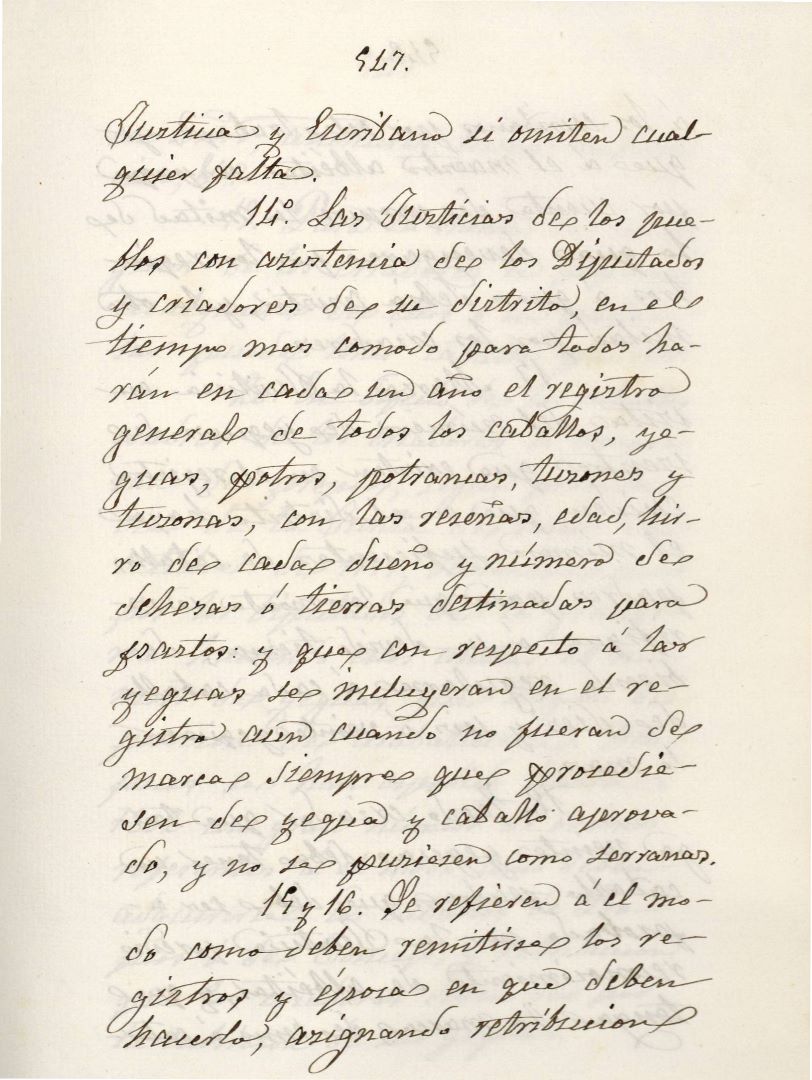 547.
Justicia y Escribano si omiten cual-
quier falta.
14º. Las Justicias de los pue-
blos con asistencia de los Diputados
y criadores de su distrito, en el
tiempo mas comodo para todos ha-
rán en cada un año el registro
general de todos los caballos, ye-
guas, potros, potrancas, tuzones y
tuzonas, con las reseñas, edad, hier-
ro de cada dueño y número de
dehesas ó tierras destinadas para
pastos: y que con respecto á las
yeguas se incluyeran en el re-
gistro aun cuando no fueran de
marca siempre que procedie-
sen de yegua y caballo aprova-
do, y no se pusiesen como serranas.
15 y 16. Se refieren á el mo-
do como deben remitirse los re-
gistros y época en que deben
hacerlo, asignando retribucion